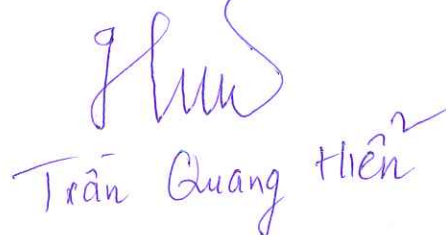 Trần Quang Hiển